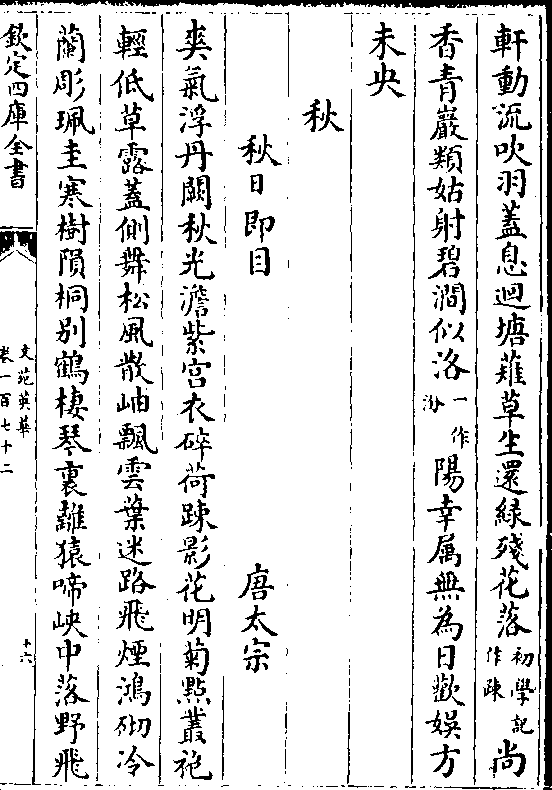 軒動流吹羽蓋息迴塘薙草生還緑殘花落初學記作踈尚
香青巖類姑射碧澗似洛一作汾陽幸属無為日歡娯方
未央
秋
秋日即目 唐太宗
爽氣浮丹闕秋光澹紫宫衣碎荷踈影花明菊㸃叢袍
輕低草露蓋側舞松風散岫飄雲葉迷路飛煙鴻砌冷
蘭彫珮圭寒樹隕桐别鶴棲琴裏離猿啼峽中落野飛
欽定四庫全書
文苑英華
卷一百七十二
十六